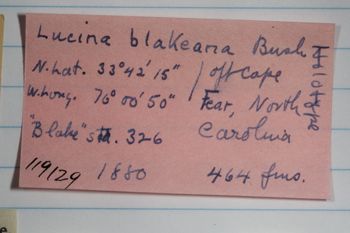 Lucina blakeana Bush
Holotype
N. Lat. 33° 42' 15" / off Cape
W. Long. 76° 00' 50" Fear, North
"Blake" sta. 326 Carolina
119129 1880 464 fms.